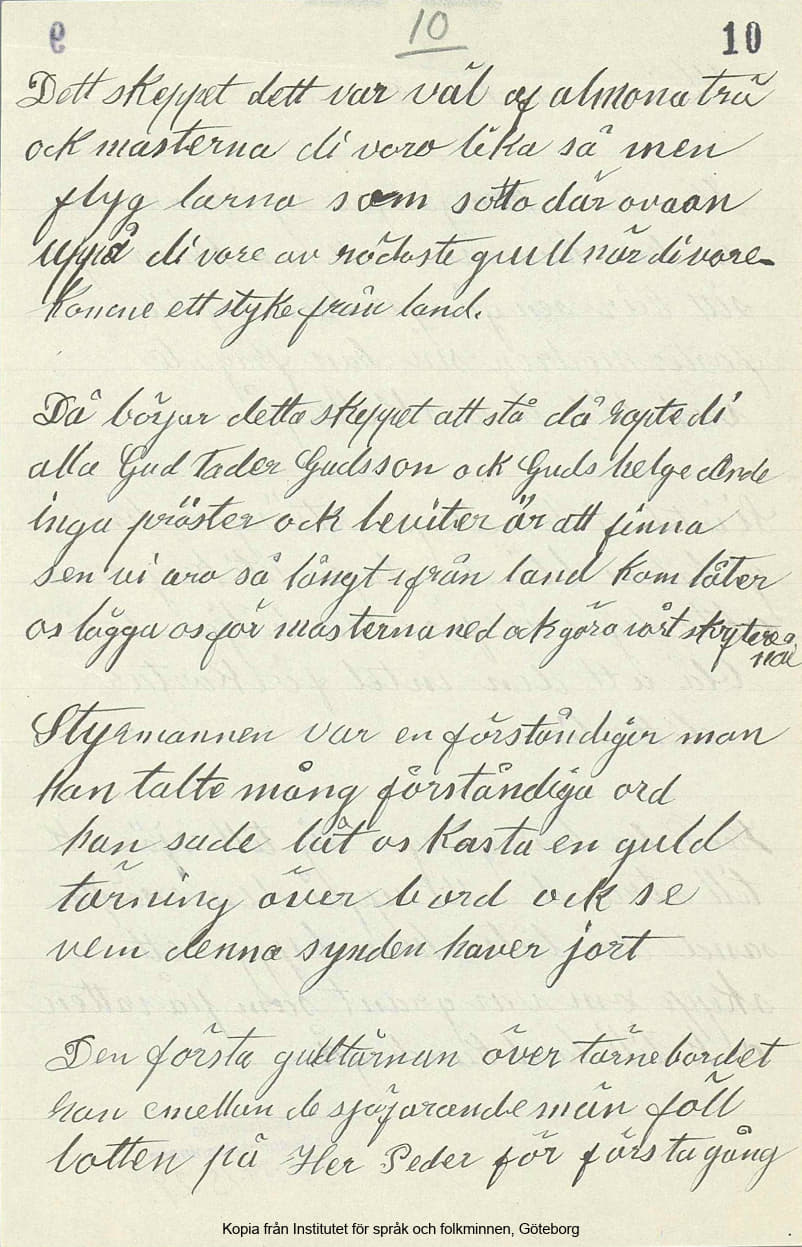 9 10 10
Dett skeppet dett var väl af almona trä
ock masterna di voro lika så men
flyg larna som sotto där ovaan
uppå di vore av rödaste guull när di vore
komne ett styke från land.
Då börjar detta skeppet att stå då ropte di
alla Gud Fader Gudsson ock Guds helge Ande
inga präster ock leviter är att finna
sen vi aro så långt ifrån land kom låter
os lägga os för masterna ned ock göra vårt
Styrmannen var en förståndiger man
han talte mång förståndiga ord
han sade låt os kasta en guld
tärning över bord ock se
vem denna synden haver jort
Den första gulltärnan över tärnebordet
han emellan de sjöfarande män föll
lotten på Her Peder för första gång
Kopia från Institutet för språk och folkminnen, Göteborg